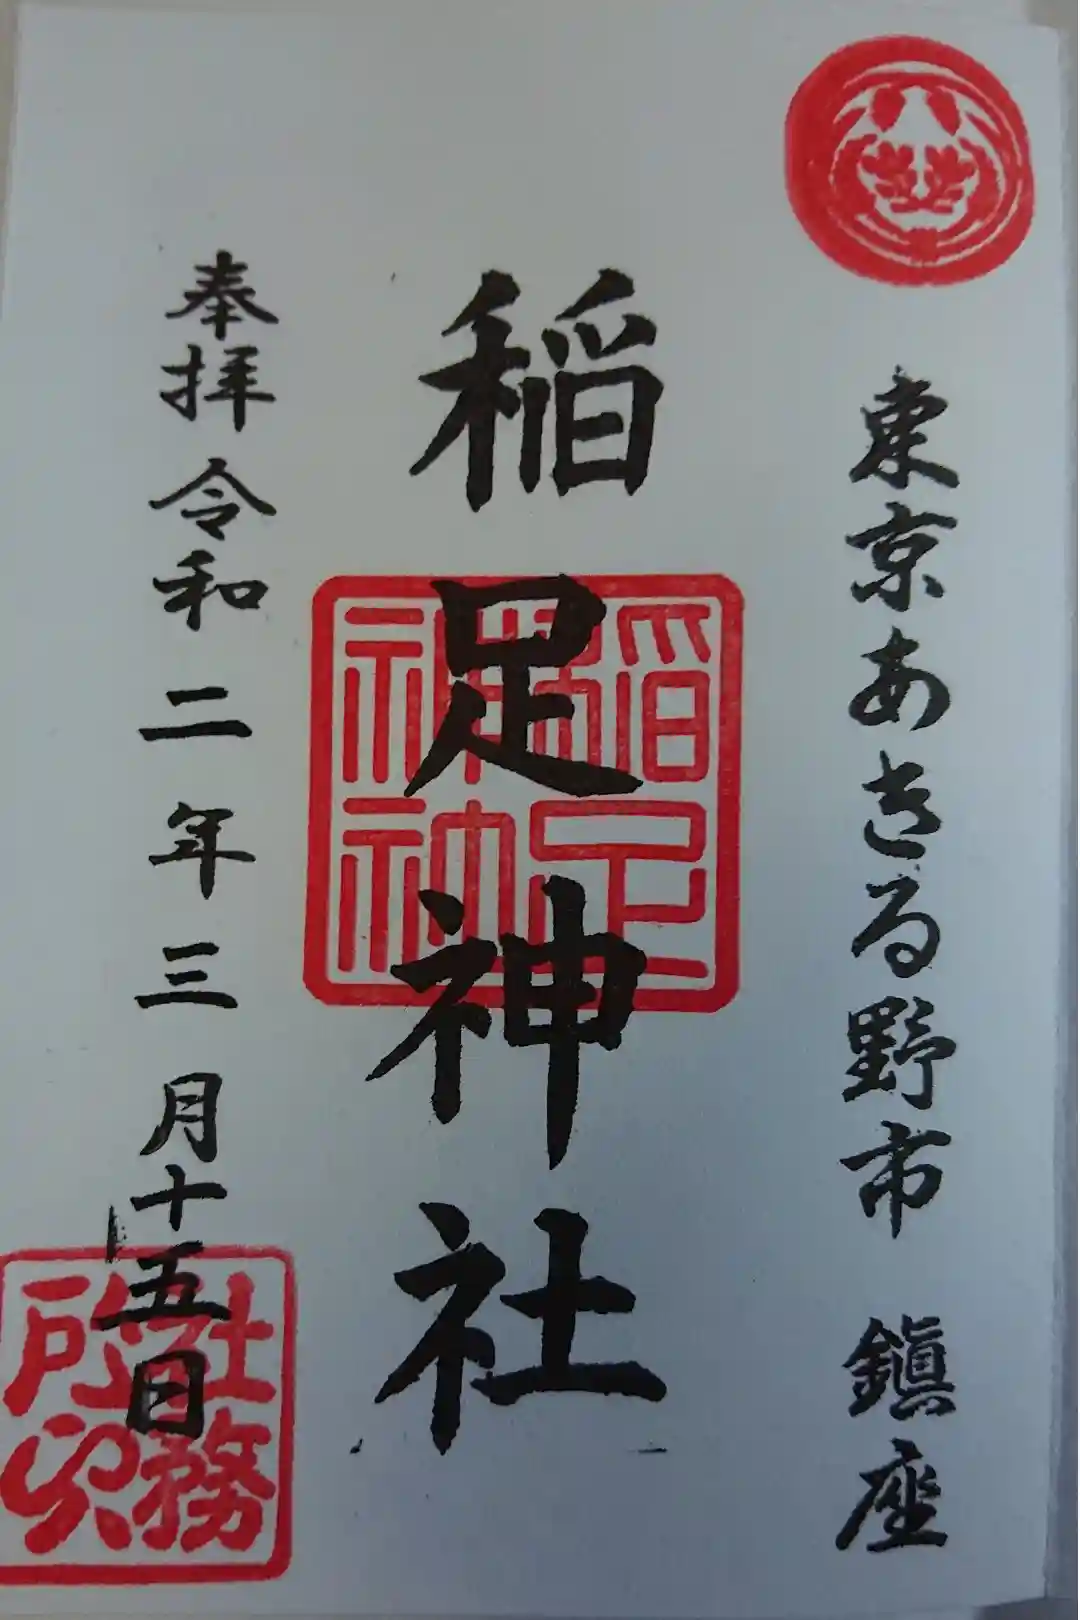 東京あきる野市 鎭座
稲足神社
奉拝 令和二年三月十五日
社務所印